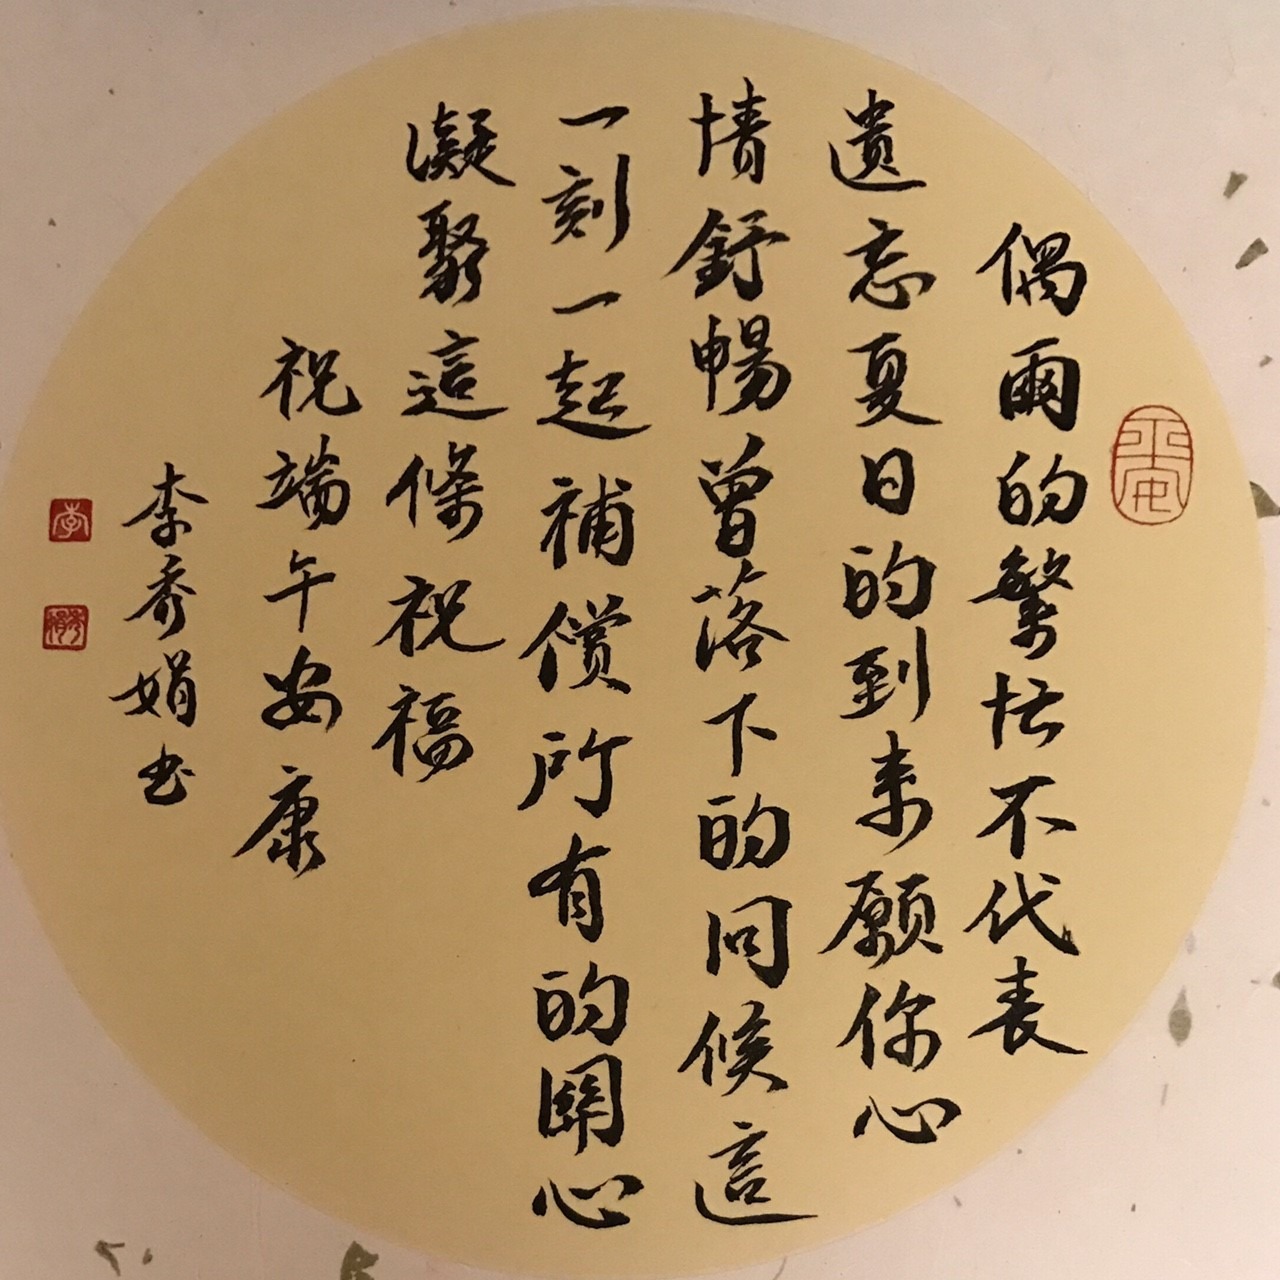 平安
偶爾的繁忙不代表
遺忘夏日的到来願你心
情舒暢曾落下的问候這
一刻一起補償所有的関心
凝聚這條祝福
祝端午安康
李秀娟书
李
秀娟